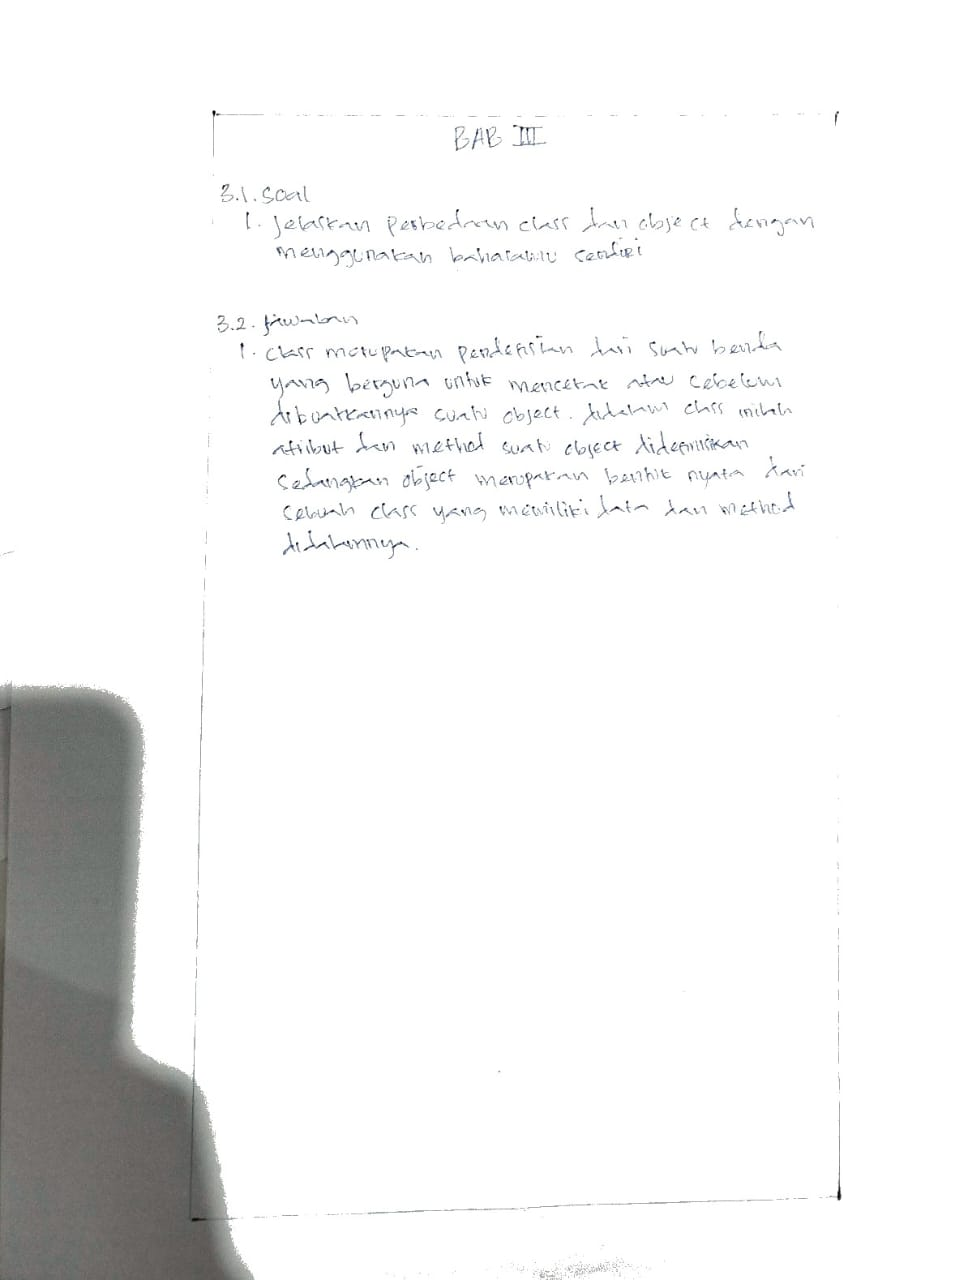 BAB III
3.1. Soal
1. Jelaskan perbedaan class dan object dengan
menggunakan bahasamu sendiri
3.2. Jawaban
1. Class merupakan pendefisian dari suatu benda
yang berguna untuk mencetak atau sebelum
dibuatkannya suatu object. didalam class inilah
atribut dan method suatu object didefinisikan
Sedangkan object merupakan bentuk nyata dari
sebuah class yang memiliki data dan method
didalamnya.